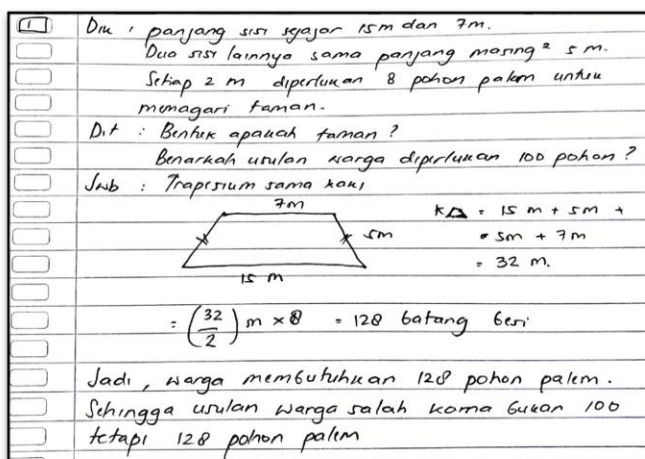 1
Dik : panjang sisi sejajar 15m dan 7m.
Dua sisi lainnya sama panjang masing² 5 m.
Setiap 2 m diperlukan 8 pohon palem untuk
memagari taman.
Dit : Bentuk apakah taman ?
Benarkah usulan warga diperlukan 100 pohon ?
Jwb : Trapesium sama kaki
7m
5m
15 m
K = 15 m + 5m +
= 5m + 7m
= 32 m.
= (32/2) m × 8 = 128 batang besi
Jadi, warga membutuhkan 128 pohon palem.
Sehingga usulan warga salah karna bukan 100
tetapi 128 pohon palem